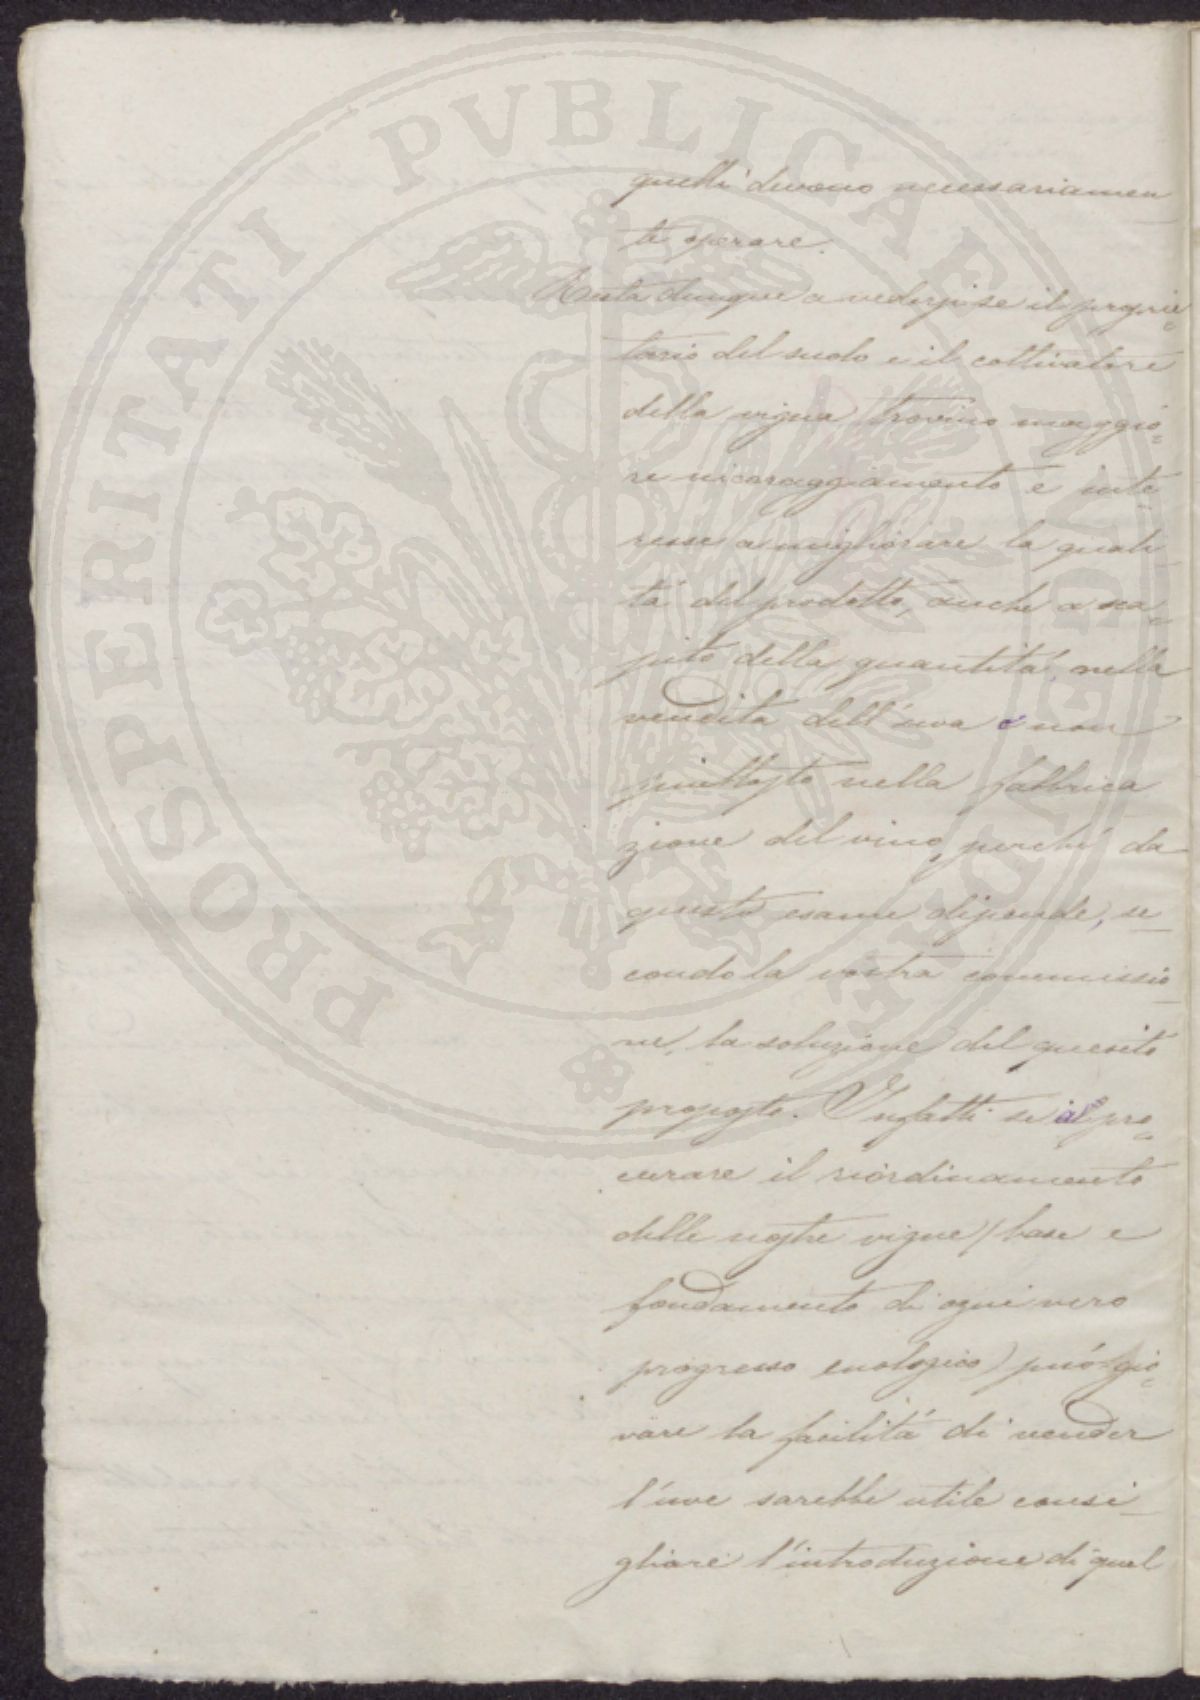 PROSPERITATI PVBLICAE AVGENDAE
quelli devono necessariamen
te operare.
Resta dunque a vedersi se il proprie=
tario del suolo e il coltivatore
della vigna trovino maggio=
re incoraggiamento e inte=
resse a migliorare la quali
tà del prodotto, anche a sca=
pito della quantità, nella
vendita dell'uva o non
piuttosto nella fabbrica
zione del vino, perchè da
questo esame dipende, se
condo la vostra commissio
ne, la soluzione del quesito
proposto. Infatti se al pro=
curare il riordinamento
delle nostre vigne (base e
fondamento di ogni vero
progresso enologico) può gio=
vare la facilità di vender
l'uve sarebbe utile consi
gliare l'introduzione di quel